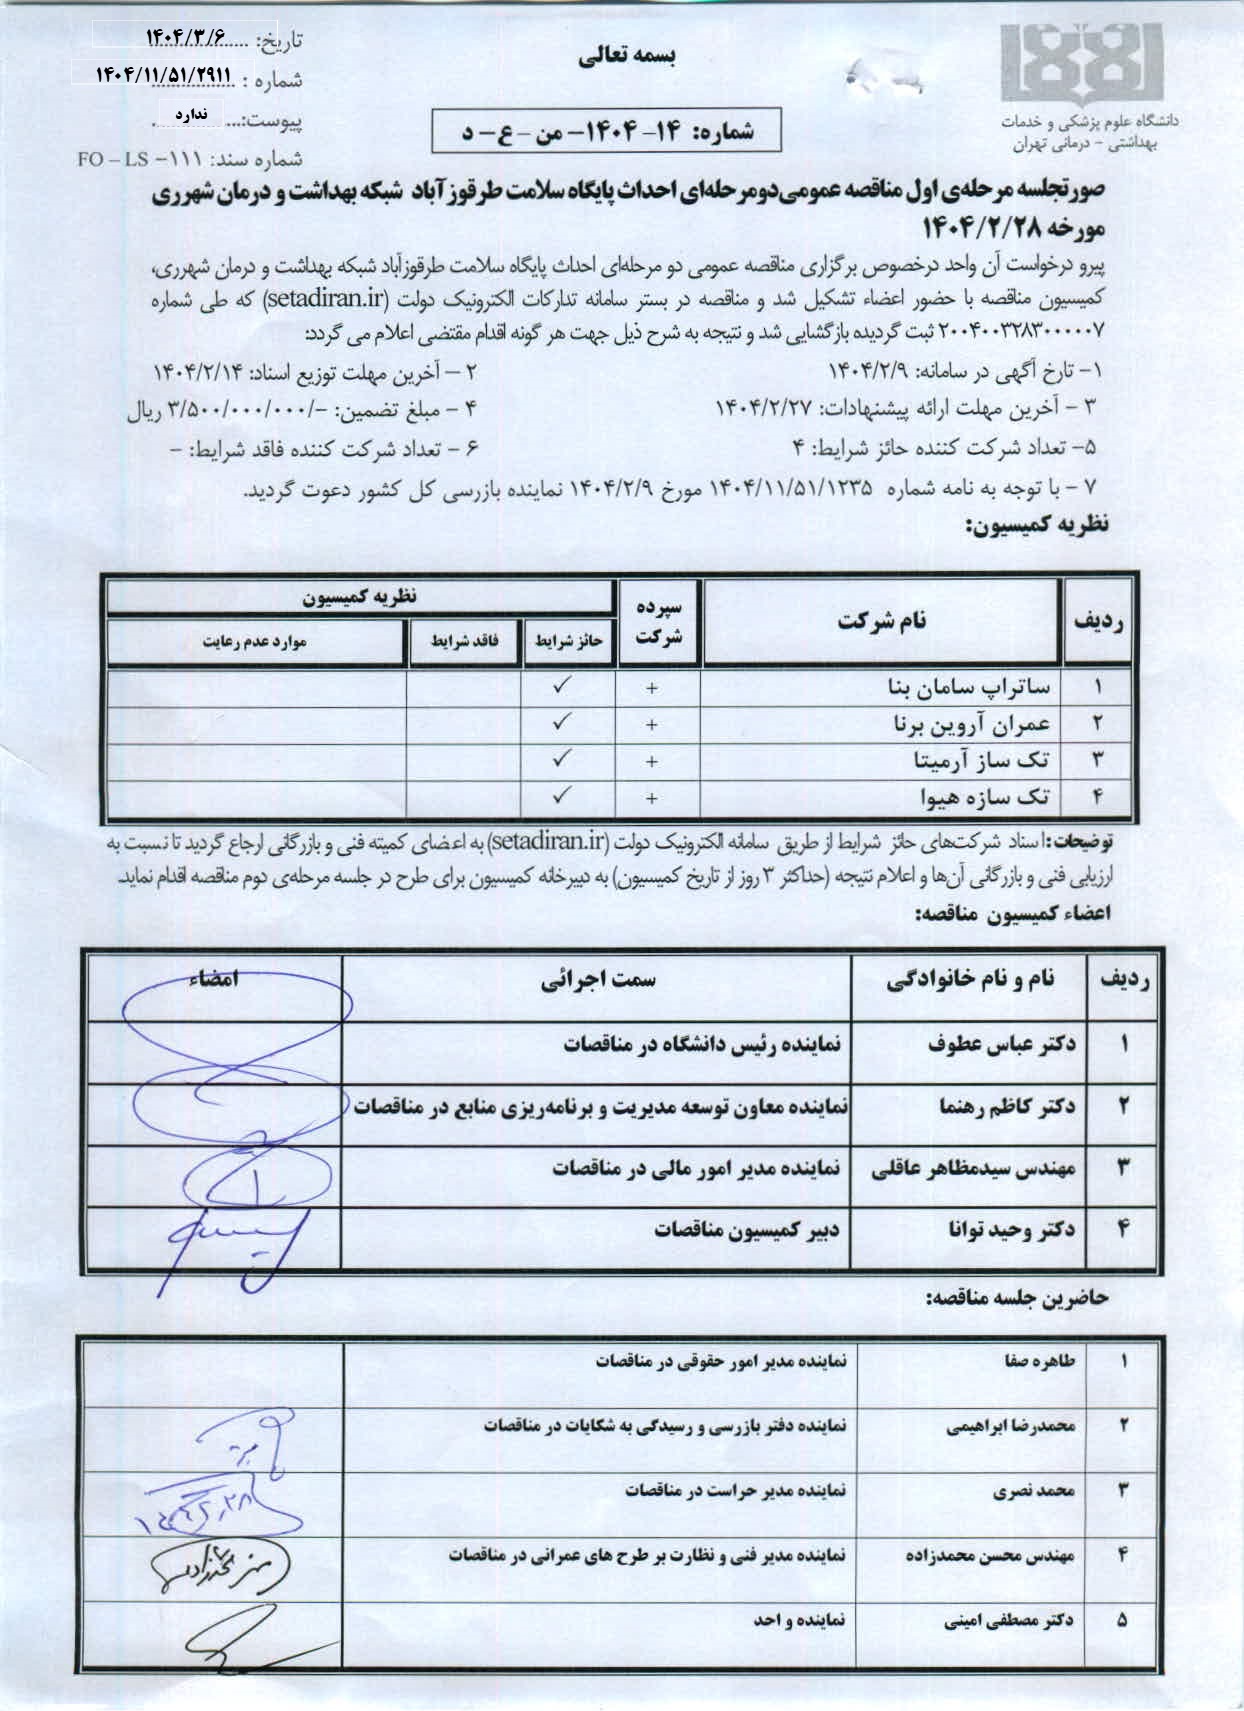 بسمه تعالی
دانشگاه علوم پزشکی و خدمات
بهداشتی - درمانی تهران
تاریخ: ۱۴۰۴/۳/۶
شماره : ۱۴۰۴/۱۱/۵۱/۲۹۱۱
پیوست:... ندارد
شماره سند: FO – LS –۱۱۱
شماره: ۱۴- ۱۴۰۴- من - ع - د
صورتجلسه مرحله‌ی اول مناقصه عمومی دومرحله‌ای احداث پایگاه سلامت طرقوزآباد شبکه بهداشت و درمان شهرری
مورخه ۱۴۰۴/۲/۲۸
پیرو درخواست آن واحد درخصوص برگزاری مناقصه عمومی دو مرحله‌ای احداث پایگاه سلامت طرقوزآباد شبکه بهداشت و درمان شهرری،
کمیسیون مناقصه با حضور اعضاء تشکیل شد و مناقصه در بستر سامانه تدارکات الکترونیک دولت (setadiran.ir) که طی شماره
۲۰۰۴۰۰۳۲۸۳۰۰۰۰۰۷ ثبت گردیده بازگشایی شد و نتیجه به شرح ذیل جهت هر گونه اقدام مقتضی اعلام می گردد:
۱- تارخ آگهی در سامانه: ۱۴۰۴/۲/۹ ۲ – آخرین مهلت توزیع اسناد: ۱۴۰۴/۲/۱۴
۳ - آخرین مهلت ارائه پیشنهادات: ۱۴۰۴/۲/۲۷ ۴ - مبلغ تضمین: -/۳/۵۰۰/۰۰۰/۰۰۰ ریال
۵- تعداد شرکت کننده حائز شرایط: ۴ ۶ - تعداد شرکت کننده فاقد شرایط: -
۷ - با توجه به نامه شماره ۱۴۰۴/۱۱/۵۱/۱۲۳۵ مورخ ۱۴۰۴/۲/۹ نماینده بازرسی کل کشور دعوت گردید.
نظریه کمیسیون:
ردیف نام شرکت سپرده شرکت نظریه کمیسیون
حائز شرایط فاقد شرایط موارد عدم رعایت
۱ ساتراپ سامان بنا + ✓
۲ عمران آروین برنا + ✓
۳ تک ساز آرمیتا + ✓
۴ تک سازه هیوا + ✓
توضیحات: اسناد شرکت‌های حائز شرایط از طریق سامانه الکترونیک دولت (setadiran.ir) به اعضای کمیته فنی و بازرگانی ارجاع گردید تا نسبت به
ارزیابی فنی و بازرگانی آن‌ها و اعلام نتیجه (حداکثر ۳ روز از تاریخ کمیسیون) به دبیرخانه کمیسیون برای طرح در جلسه مرحله‌ی دوم مناقصه اقدام نماید.
اعضاء کمیسیون مناقصه:
ردیف نام و نام خانوادگی سمت اجرائی امضاء
۱ دکتر عباس عطوف نماینده رئیس دانشگاه در مناقصات
۲ دکتر کاظم رهنما نماینده معاون توسعه مدیریت و برنامه‌ریزی منابع در مناقصات
۳ مهندس سیدمظاهر عاقلی نماینده مدیر امور مالی در مناقصات
۴ دکتر وحید توانا دبیر کمیسیون مناقصات
حاضرین جلسه مناقصه:
۱ طاهره صفا نماینده مدیر امور حقوقی در مناقصات
۲ محمدرضا ابراهیمی نماینده دفتر بازرسی و رسیدگی به شکایات در مناقصات
۳ محمد نصری نماینده مدیر حراست در مناقصات
۴ مهندس محسن محمدزاده نماینده مدیر فنی و نظارت بر طرح های عمرانی در مناقصات
۵ دکتر مصطفی امینی نماینده واحد